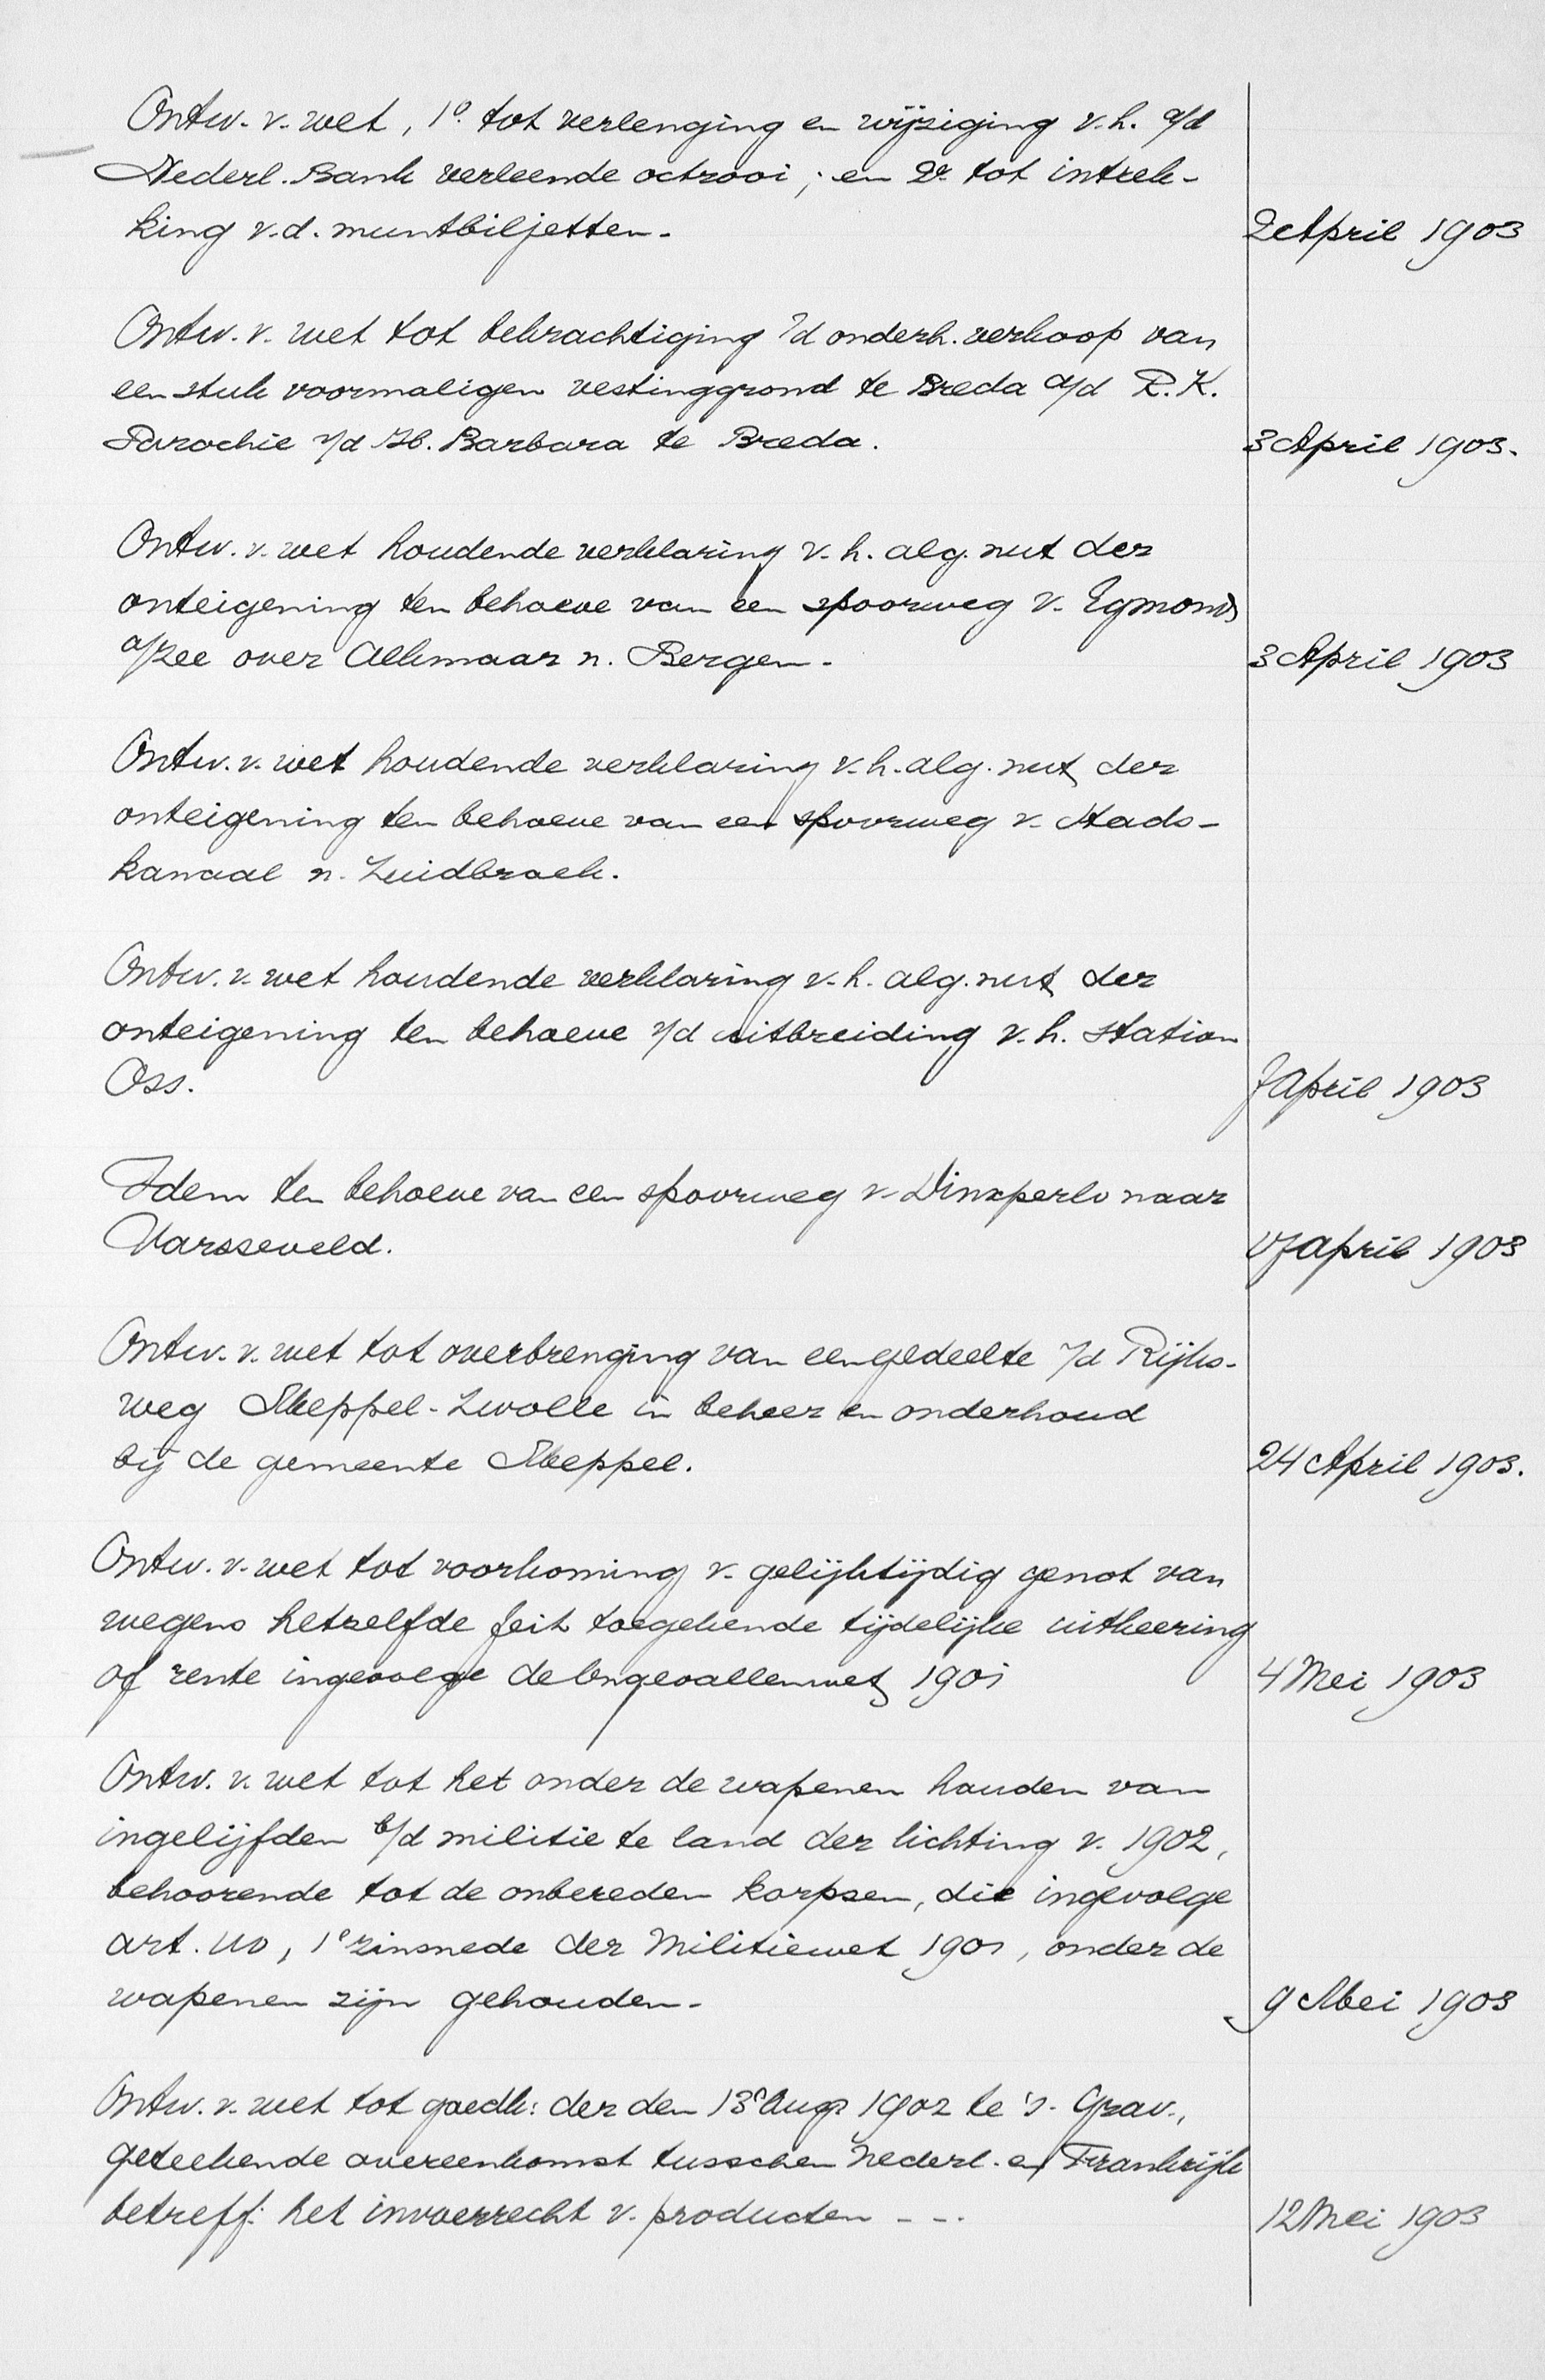 Ontw. v. wet, 1º tot verlenging en wijziging v.h. a/d
Nederl. Bank verleende octrooi; en 2º tot intrek-
king v.d. muntbiljetten. 2 April 1903
Ontw. v. wet tot bekrachtiging v/d onderh. verkoop van
een stuk voormaligen vestinggrond te Breda a/d R.K.
Parochie v/d H. Barbara te Breda. 3 April 1903.
Ontw. v. wet houdende verklaring v.h. alg. nut der
onteigening ten behoeve van een spoorweg v. Egmond
a/zee over Alkmaar n. Bergen. 3 April 1903
Ontw. v. wet houdende verklaring v.h. alg. nut der
onteigening ten behoeve van een spoorweg v. Stads-
kanaal n. Zuidbroek.
Ontw. v. wet houdende verklaring v.h. alg. nut der
onteigening ten behoeve v/d uitbreiding v.h. station
Oss. 7 April 1903
Idem ten behoeve van een spoorweg v. Dinxperlo naar
Varsseveld. 17 april 1903
Ontw. v. wet tot overbrenging van een gedeelte v/d Rijks-
weg Meppel-Zwolle in beheer en onderhoud
bij de gemeente Meppel. 24 April 1903.
Ontw. v. wet tot voorkoming v. gelijktijdig genot van
wegens hetzelfde feit toegekende tijdelijke uitkeering
of rente ingevolge de Ongevallenwet 1901 4 Mei 1903
Ontw. v. wet tot het onder de wapenen houden van
ingelijfden b/d militie te land der lichting v. 1902,
behoorende tot de onbereden korpsen, die ingevolge
art. 110, 1e zinsnede der Militiewet 1901, onder de
wapenen zijn gehouden. 9 Mei 1903
Ontw. v. wet tot goedk: der den 13n Aug. 1902 te 's-Grav.,
geteekende overeenkomst tusschen Nederl. en Frankrijk
betreff: het invoerrecht v. producten - - . 12 Mei 1903